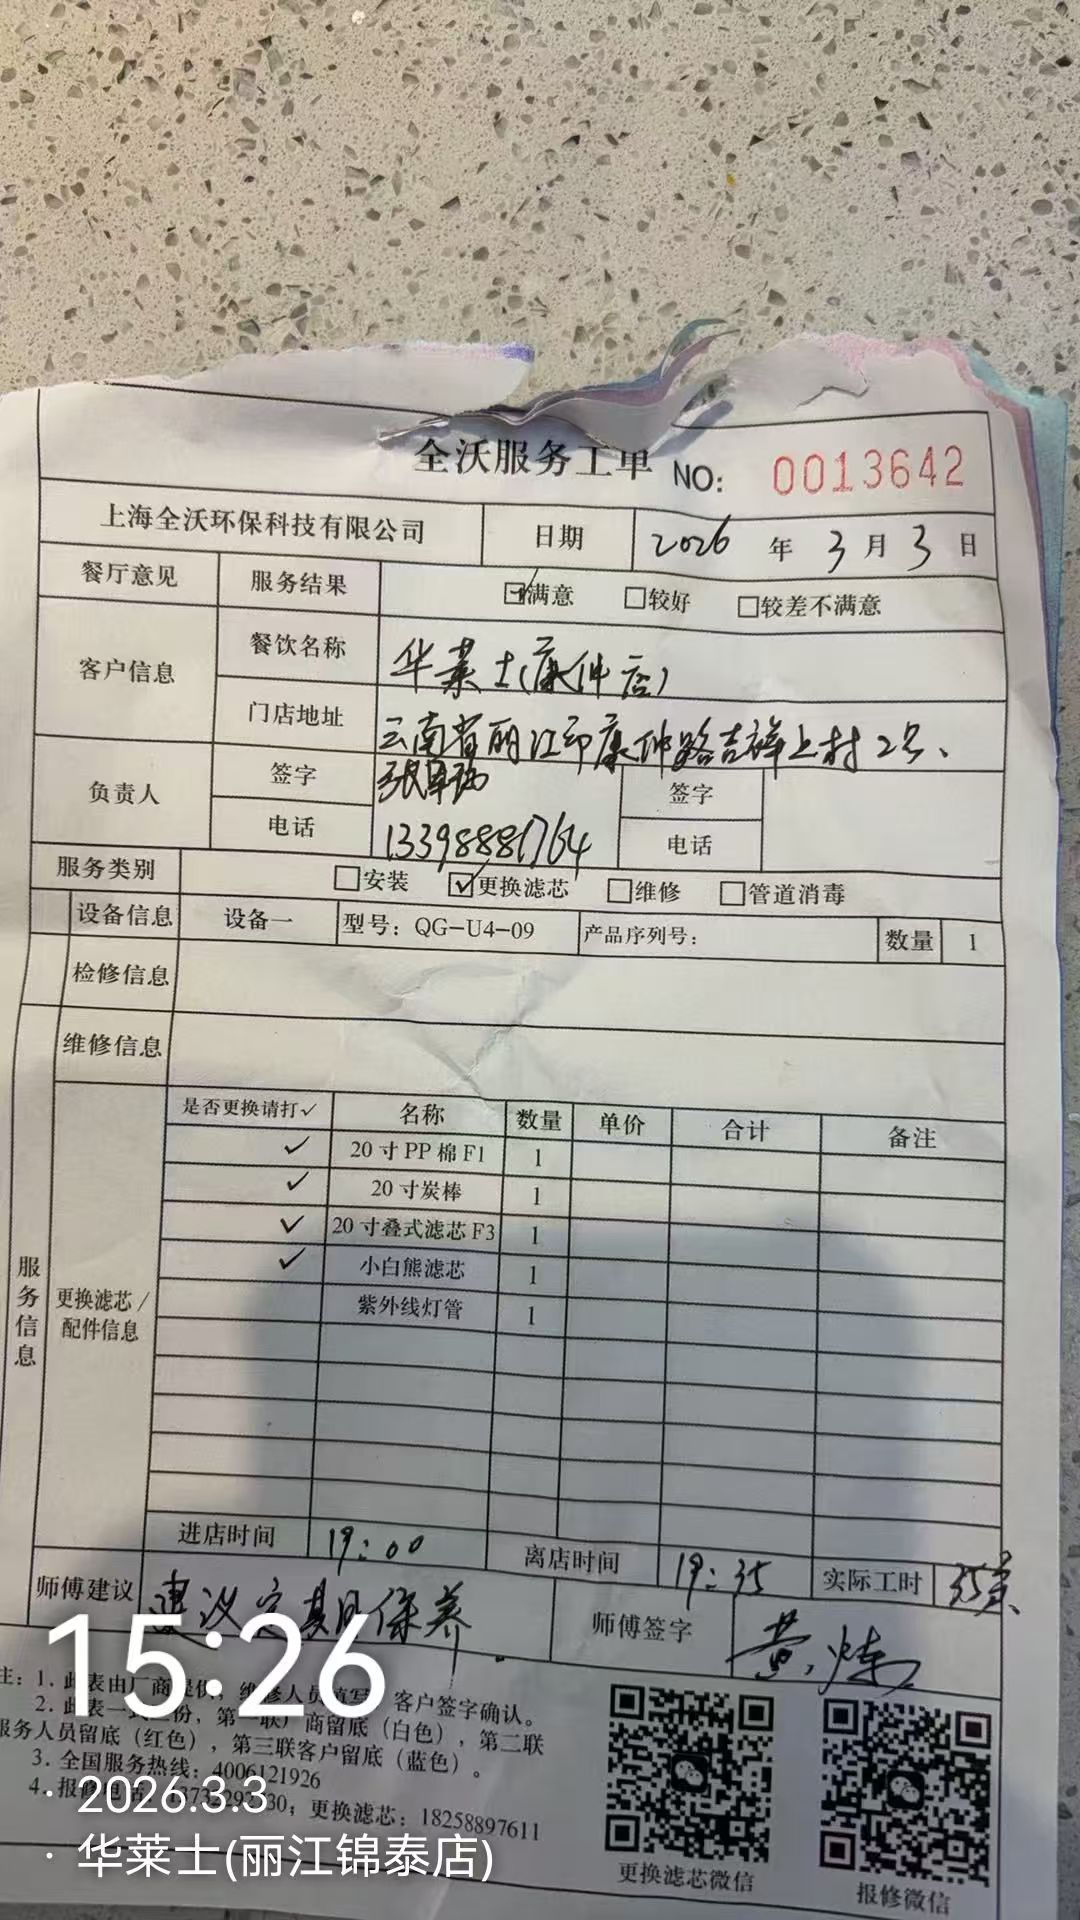 全沃服务工单 NO: 0013642
上海全沃环保科技有限公司 日期 2026 年 3 月 3 日
餐厅意见 服务结果 ☑满意 □较好 □较差不满意
客户信息 餐饮名称 华莱士(康仲店)
门店地址 云南省丽江市康仲路吉祥上村2号、
负责人 签字 签字
电话 13398881764 电话
服务类别 □安装 ☑更换滤芯 □维修 □管道消毒
设备信息 设备一 型号：QG-U4-09 产品序列号： 数量 1
检修信息
维修信息
服务信息
更换滤芯/配件信息
是否更换请打✓ 名称 数量 单价 合计 备注
✓ 20寸PP棉F1 1
✓ 20寸炭棒 1
✓ 20寸叠式滤芯F3 1
✓ 小白熊滤芯 1
紫外线灯管 1
进店时间 19:00 离店时间 19:35 实际工时 35
师傅建议 建议定期保养 师傅签字 黄
注：1. 此表由厂商提供，维修人员填写，客户签字确认。
2. 此表一式 份，第一联厂商留底（白色），第二联
服务人员留底（红色），第三联客户留底（蓝色）。
3. 全国服务热线：4006121926
4. 报修电话 ；更换滤芯：18258897611
更换滤芯微信 报修微信
15:26
· 2026.3.3
· 华莱士(丽江锦泰店)